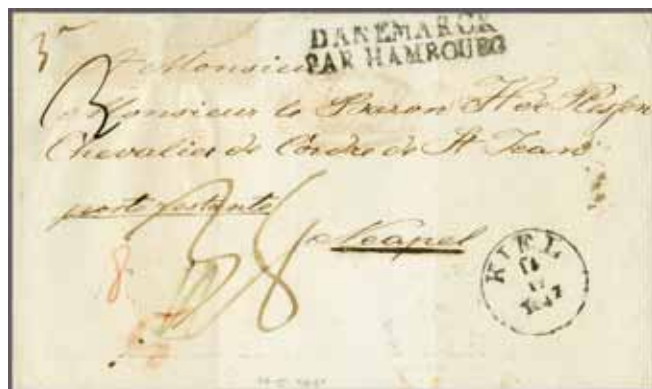 DANEMARCK
PAR HAMBOURG
A Monsieur
Monsieur le Baron
Chevalier de l'ordre de St Jean
poste restante
a Neapel
8
KIEL
1847